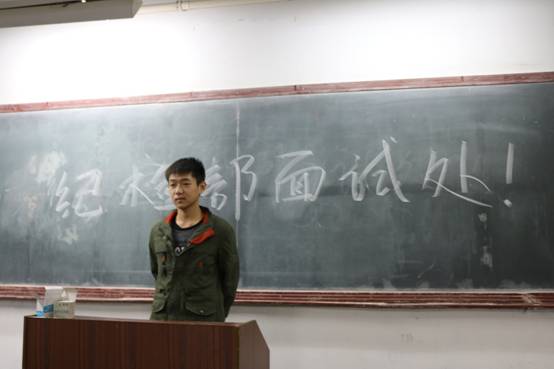 纪检部面试处!